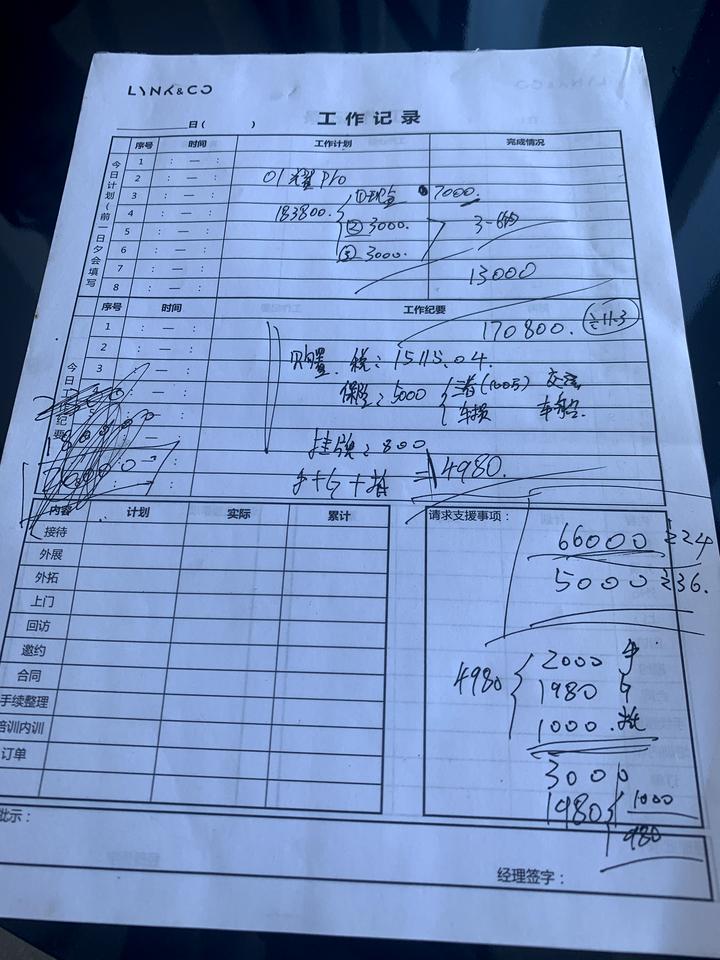 LYNK&CO
工作记录
日( )
今日计划(前一日夕会填写
序号 时间 工作计划 完成情况
1 : — :
2 : — : 01 耀 Pro
3 : — : ① 7000.
4 : — : 183800.
5 : — : ② 3000.
6 : — : ③ 3000.
7 : — : 13000
8 : — :
序号 时间 工作纪要
今日工作纪要
1 : — : 170800. ÷11.3
2 : — : 购置税: 15115.04.
3 保险: 5000 三者(100万) 交强
车损 车船
挂牌: 800
手+G+挂 = 4980.
内容 计划 实际 累计
接待
外展
外拓
上门
回访
邀约
合同
手续整理
培训内训
订单
请求支援事项:
66000 ÷24
5000 ÷36.
4980
2000 手
1980 G
1000.挂
3000
1980 1000
980
批示:
经理签字: